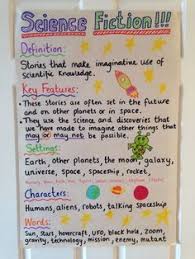 Science Fiction!!!
Definition:
Stories that make imaginative use of
scientific knowledge.
Key Features:
• These stories are often set in the future
and on other planets or in space.
• They use the science and discoveries that
we have made to imagine other things that
may or may not be possible.
Settings:
Earth, other planets, the moon, galaxy,
universe, space, spaceship, rocket,
Characters:
Humans, aliens, robots, talking spaceship
Words:
Sun, stars, hovercraft, UFO, black hole, zoom,
gravity, technology, mission, enemy, mutant